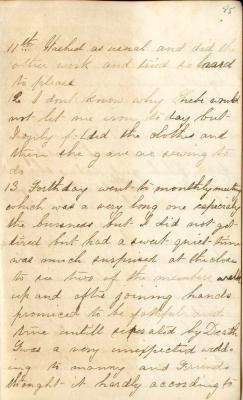 85
11th Washed as usual and did the
other work and tried so hard
to please
12 I don't know why Hebe would
not let me iron to day but
I only folded the clothes and
then she gave me sewing to
do
13 Forthday went to monthly meeting
which was a very long one especially
the business but I did not get
tired but had a sweet quiet time
was much surprised at the close
to see two of the members
up and after joining hands
promised to be faithful and
true untill seperated by Death
Twas a very unexpected wedd-
ing to many and Friends
thought it hardly according to